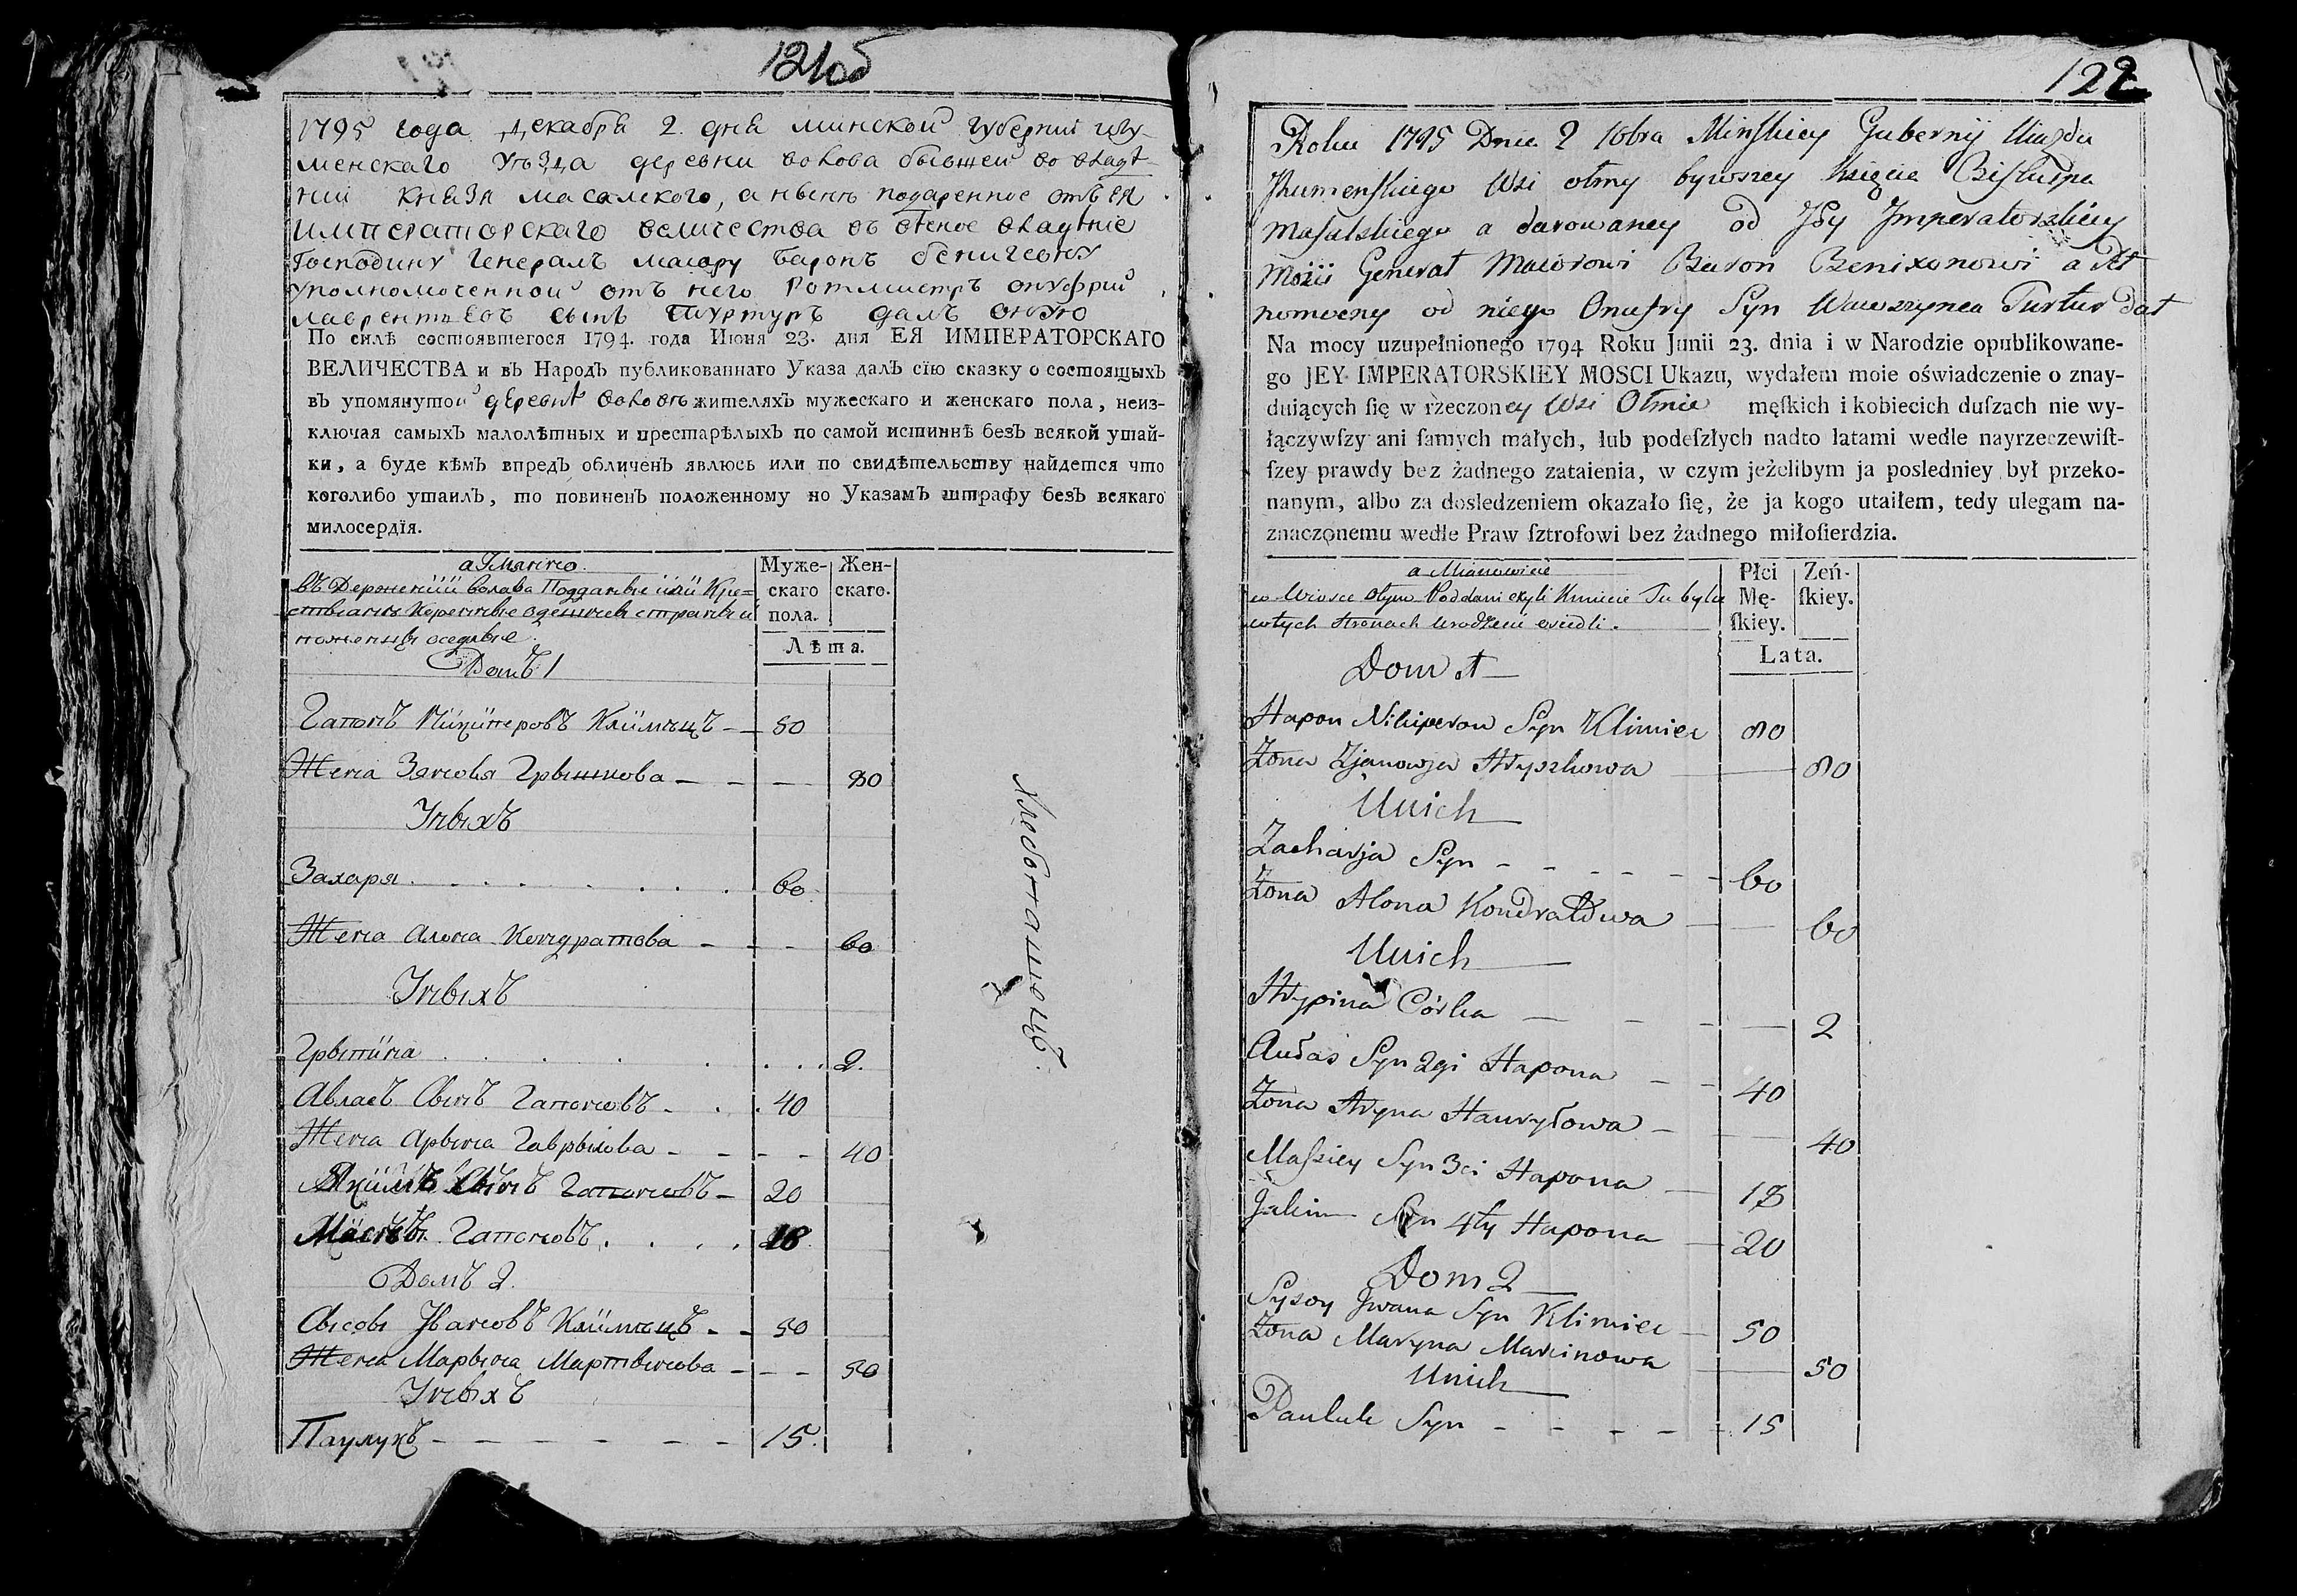 121об
1795 года декабря 2. дня минской губернии игу-
менскаго уѣзда деревни волова бывшей во владѣ-
нии князя масалского, а нынѣ подаренное отъ ея
императорскаго величества въ вѣчное владѣние
Господину Генералъ маиору Баронъ бениксону
уполномоченной отъ него Ротмистръ онуфрий
лаврентьевъ сынъ туртуръ далъ
По силѣ состоявшегося 1794. года Июня 23. дня ЕЯ ИМПЕРАТОРСКАГО
ВЕЛИЧЕСТВА и въ Народъ публикованнаго Указа далъ сїю сказку о состоящыхъ
въ упомянутой деревнѣ воловѣ жителяхъ мужескаго и женскаго пола, неиз-
ключая самыхъ малолѣтныхъ и престарѣлыхъ по самой истиннѣ безъ всякой утай-
ки, а буде кѣмъ впредъ обличенъ явлюсь или по свидѣтельству найдется что
коголибо утаилъ, то повиненъ положенному по Указамъ штрафу безъ всякаго
милосердїя.
а Имянно
Муже-
скаго
пола.
Жен-
скаго.
Лѣта.
Подданые
Домъ 1
Гапонъ Никиперовъ Климецъ — 80
Жена Зановя Грышкова — — — 80
У ныхъ
Захаря . . . . . . . 60
Жена Алона Кондратова — — — 60
У ныхъ
Грыпина . . . . . . . 2.
Авласъ Сынъ Гапоновъ . . . 40
Жена Арына Гаврылова — — — — 40
Якимъ Сынъ Гапоновъ — 20
Гапоновъ . . . . 18
Домъ 2.
Сысоы Ивановъ Климецъ — — 50
Жена Марына Мартынова — — — 50
У ныхъ
Паулукъ — — — — — — 15.
122
Roku 1795 Dnia 2 10bra Minskiey Gubernij Uiazdu
Jhumenskiego Wsi olmy bywszey Księcia Biskupa
Masalskiego a darowaney od Jey Imperatorskiey
Mości Generał Maiorowi Baron Benixonowi a Peł
nomocny od niego Onufry Syn Wawrzynca Turtur dał
Na mocy uzupełnionego 1794 Roku Junii 23. dnia i w Narodzie opublikowane-
go JEY IMPERATORSKIEY MOSCI Ukazu, wydałem moie oświadczenie o znay-
duiących ſię w rzeczoney Wsi Olmie męſkich i kobiecich duſzach nie wy-
łączywſzy ani ſamych małych, lub podeſzłych nadto latami wedle nayrzeczewiſt-
ſzey prawdy bez żadnego zataienia, w czym jeżelibym ja posledniey był przeko-
nanym, albo za dosledzeniem okazało ſię, że ja kogo utaiłem, tedy ulegam na-
znaczonemu wedle Praw ſztrofowi bez żadnego miłoſierdzia.
a Mianowicie
Płci
Mę-
ſkiey.
Zeń-
ſkiey.
Lata.
w Wiosce Poddani czyli Kmiecie Tu byli
w tych Stronach Urodzeni osiedli.
Dom 1
Hapon Nikiperow Syn Klimiec 80
Żona Zjanowja Hryszkowa — 80
U nich
Zacharja Syn — — — — — 60
Żona Alona Kondratowa — 60
U nich
Hrypina Córka — — — 2
Audas Syn 2gi Hapona — — 40
Żona Aryna Hauryłowa — 40
Syn 3ci Hapona — 18
Jakim Syn 4ty Hapona — 20
Dom 2
Sysoy Jwana Syn Klimiec — 50
Żona Maryna Marcinowa — 50
U nich
Pauluk Syn — — — — — 15